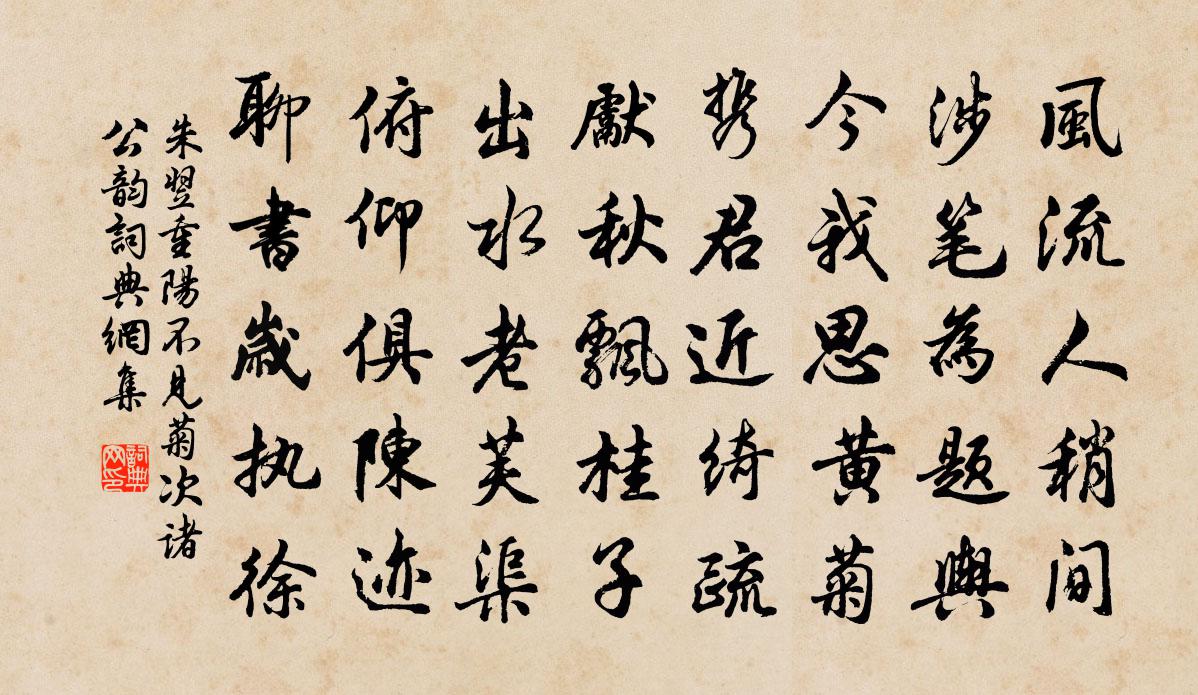 風流人稍間
涉笔為题輿
今我思黄菊
携君近绮疏
獻秋飄桂子
出水老芙渠
俯仰俱陳迹
聊書歲执徐
朱翌重陽不見菊次诸
公韵詞典網集
詞典
网印